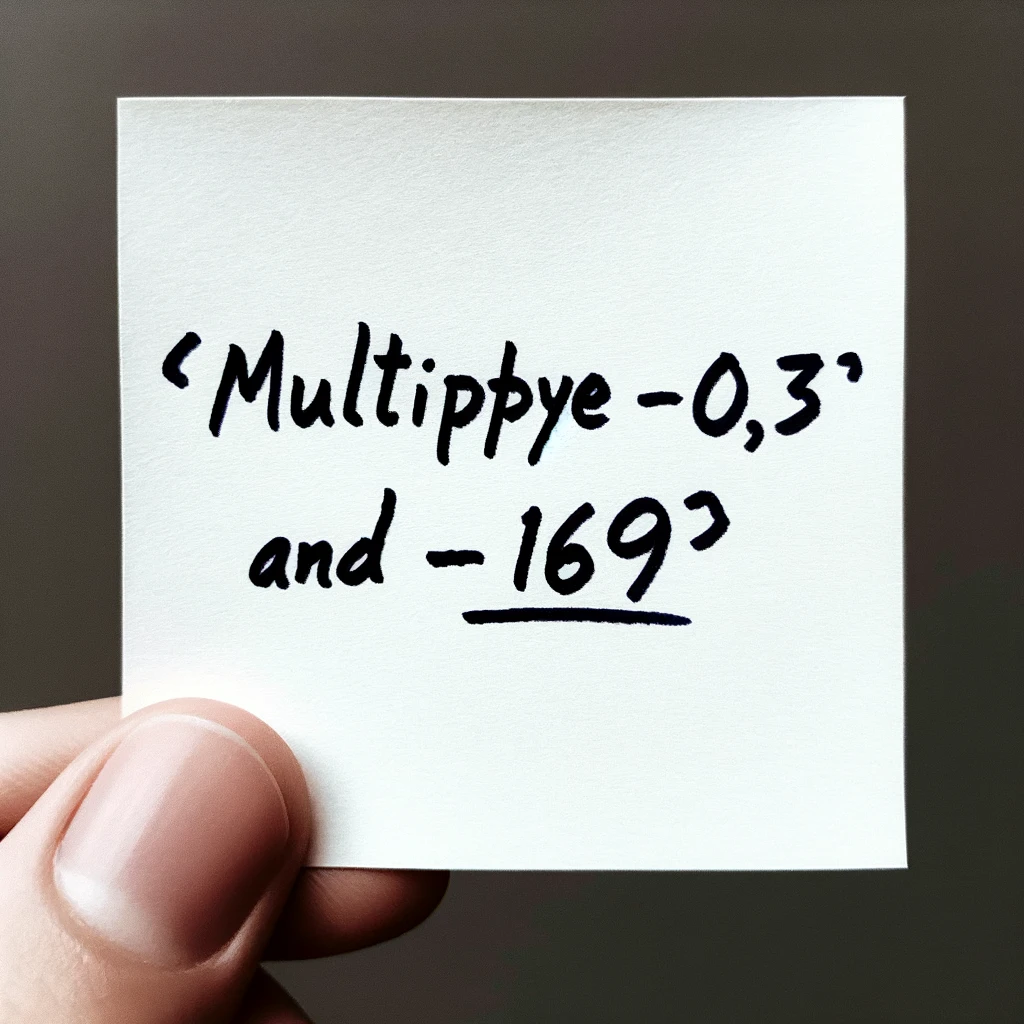 ‘Multippye -0,3’
and - 169’